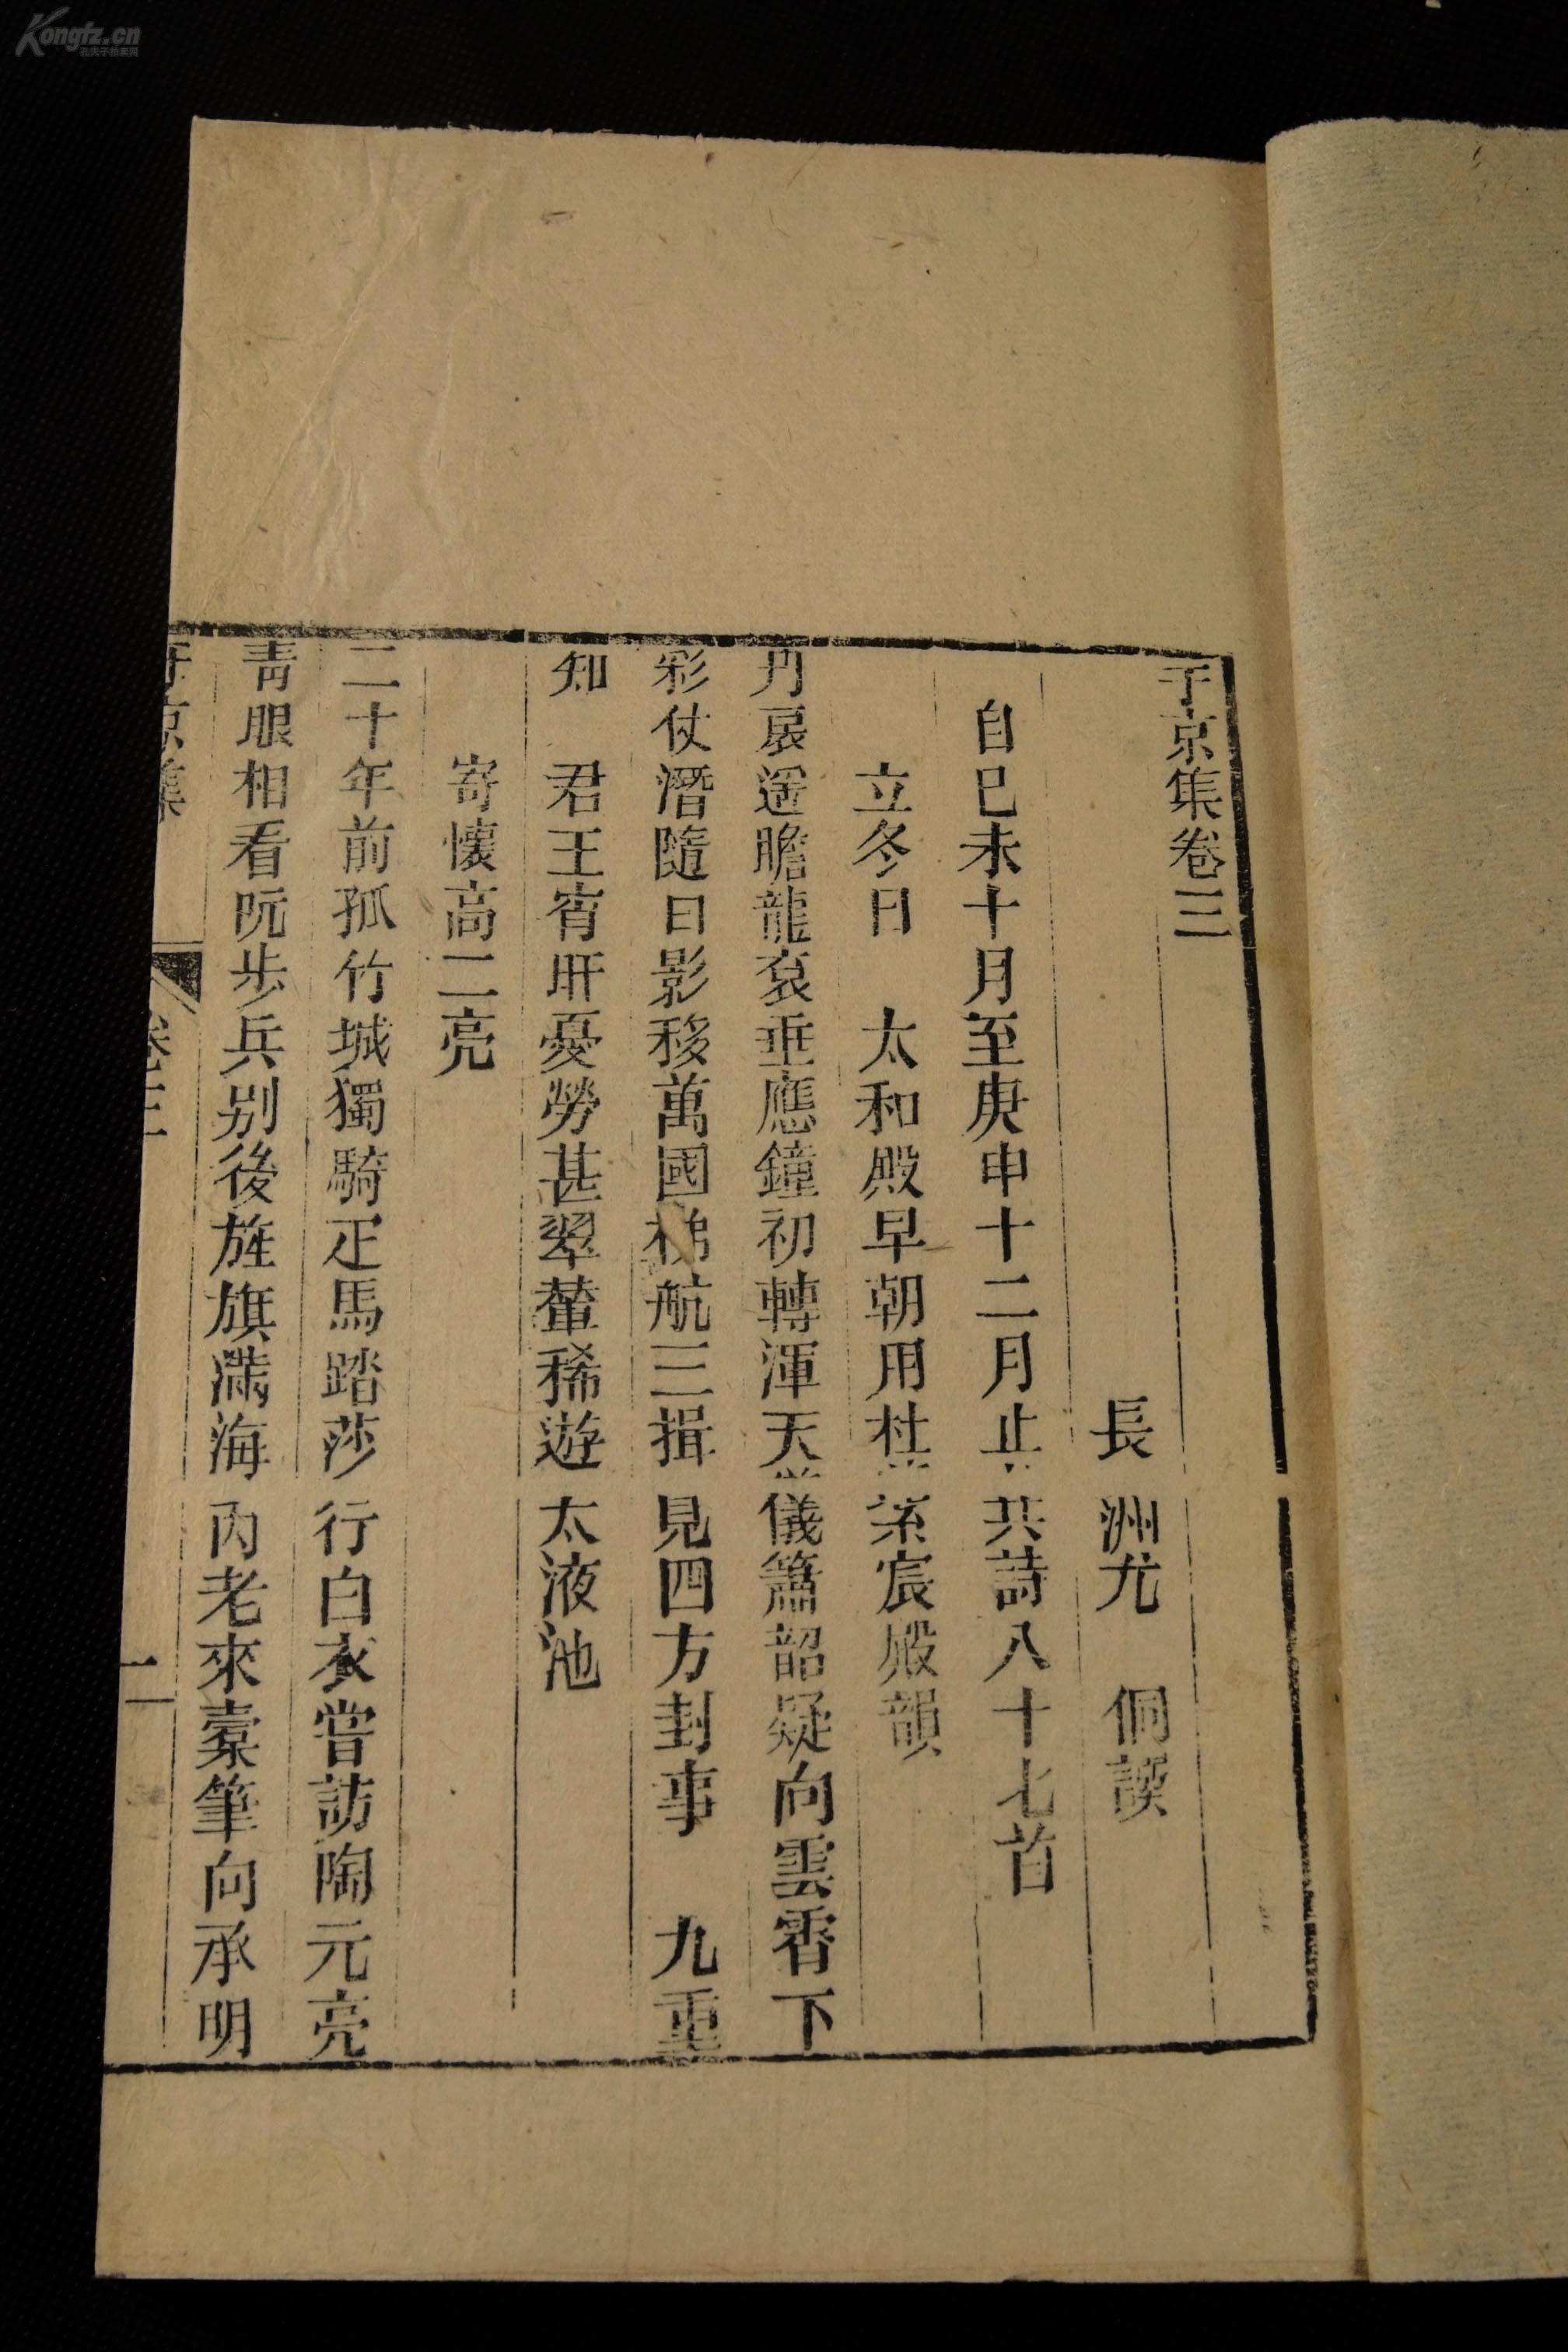 于京集卷三
長洲尤　侗譔
自已未十月至庚申十二月止共詩八十七首
立冬日　太和殿早朝用杜紫宸殿韻
丹扆遥瞻龍袞垂應鐘初轉渾天儀簫韶疑向雲霄下
彩仗潛隨日影移萬國梯航三揖見四方封事　九重
知　君王宵旰憂勞甚翠輦稀遊太液池
寄懷高二亮
二十年前孤竹城獨騎疋馬踏莎行白衣嘗訪陶元亮
青眼相看阮步兵别後旌旗滿海內老來槖筆向承明
于京集　卷三　二
Kongfz.cn